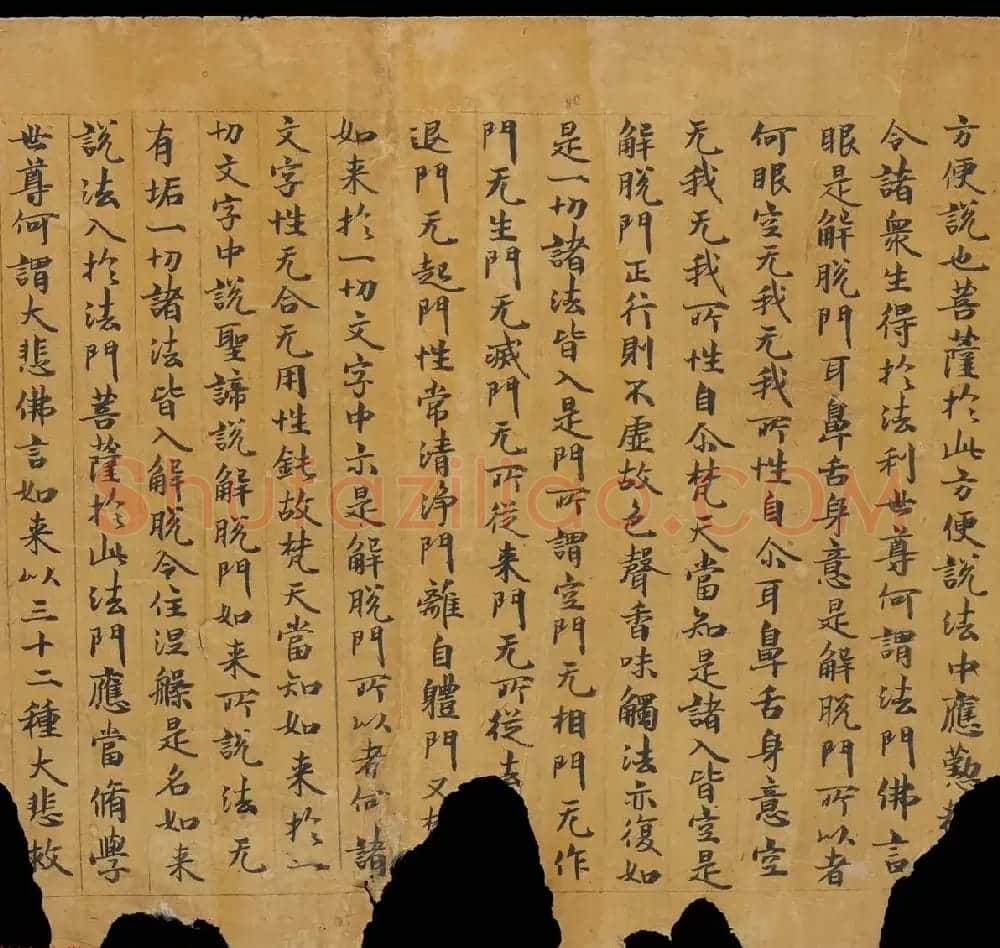 方便說也菩薩於此方便說法中應懃
令諸衆生得於法利世尊何謂法門佛言
眼是解脫門耳鼻舌身意是解脫門所以者
何眼空无我无我所性自尒耳鼻舌身意空
无我无我所性自尒梵天當知是諸入皆空是
解脫門正行則不虛故色聲香味觸法亦復如
是一切諸法皆入是門所謂空門无相門无作
門无生門无滅門无所從来門无所從去
退門无起門性常清淨門離自體門又
如来於一切文字中示是解脫門所以者何諸
文字性无合无用性鈍故梵天當知如来於一
切文字中說聖諦說解脫門如来所說法无
有垢一切諸法皆入解脫令住涅槃是名如来
說法入於法門菩薩於此法門應當脩學
世尊何謂大悲佛言如来以三十二種大悲救
Shufaziliao.COM